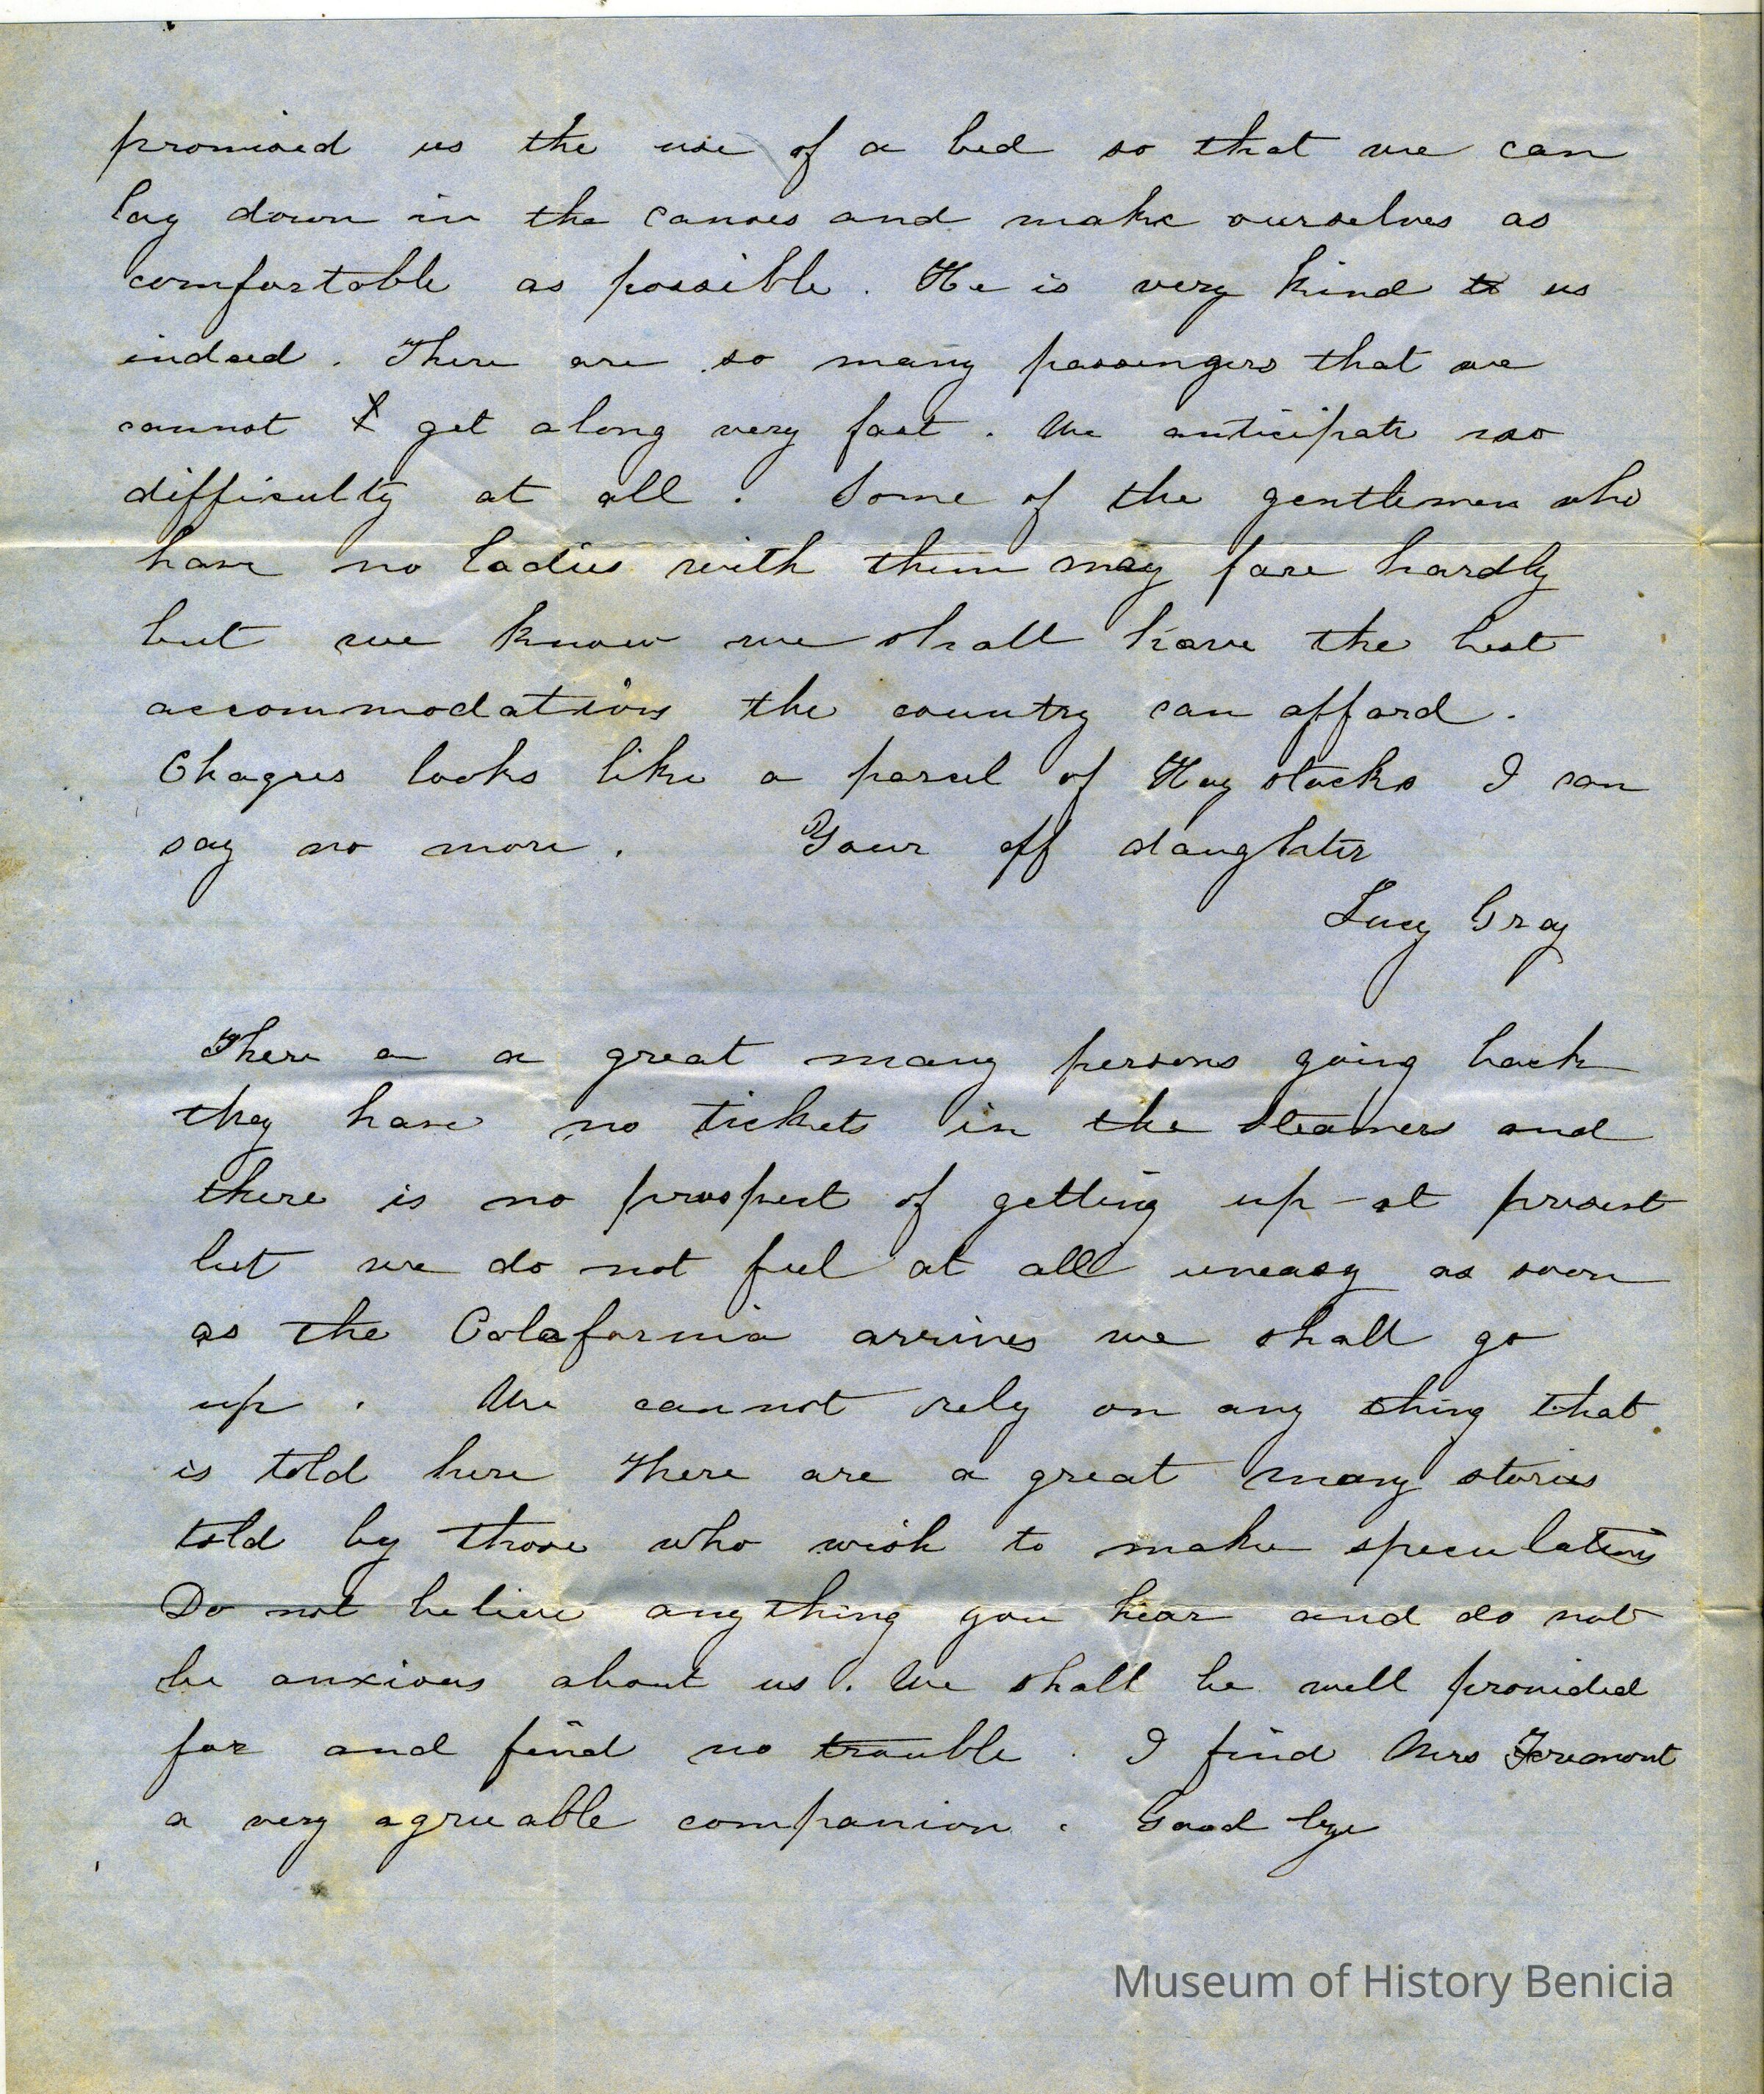 promised us the use of a bed so that we can
lay down in the canoes and make ourselves as
comfortable as possible. He is very kind to us
indeed. There are so many passengers that we
cannot get along very fast. We anticipate no
difficulty at all. Some of the gentlemen who
have no ladies with them may fare hardly
but we know we shall have the best
accommodations the country can afford.
Chagres looks like a parcel of Hay stacks I can
say no more. Your aff daughter
Lucy Gray
There a a great many persons going back
they have no tickets in the steamers and
there is no prospect of getting up at present
but we do not feel at all uneasy as soon
as the Calafornia arrives we shall go
up. We cannot rely on any thing that
is told here There are a great many stories
told by those who wish to make speculations
Do not believe any thing you hear and do not
be anxious about us. We shall be well provided
for and find no trouble. I find Mrs Freemont
a very agreeable companion. Good bye
Museum of History Benicia